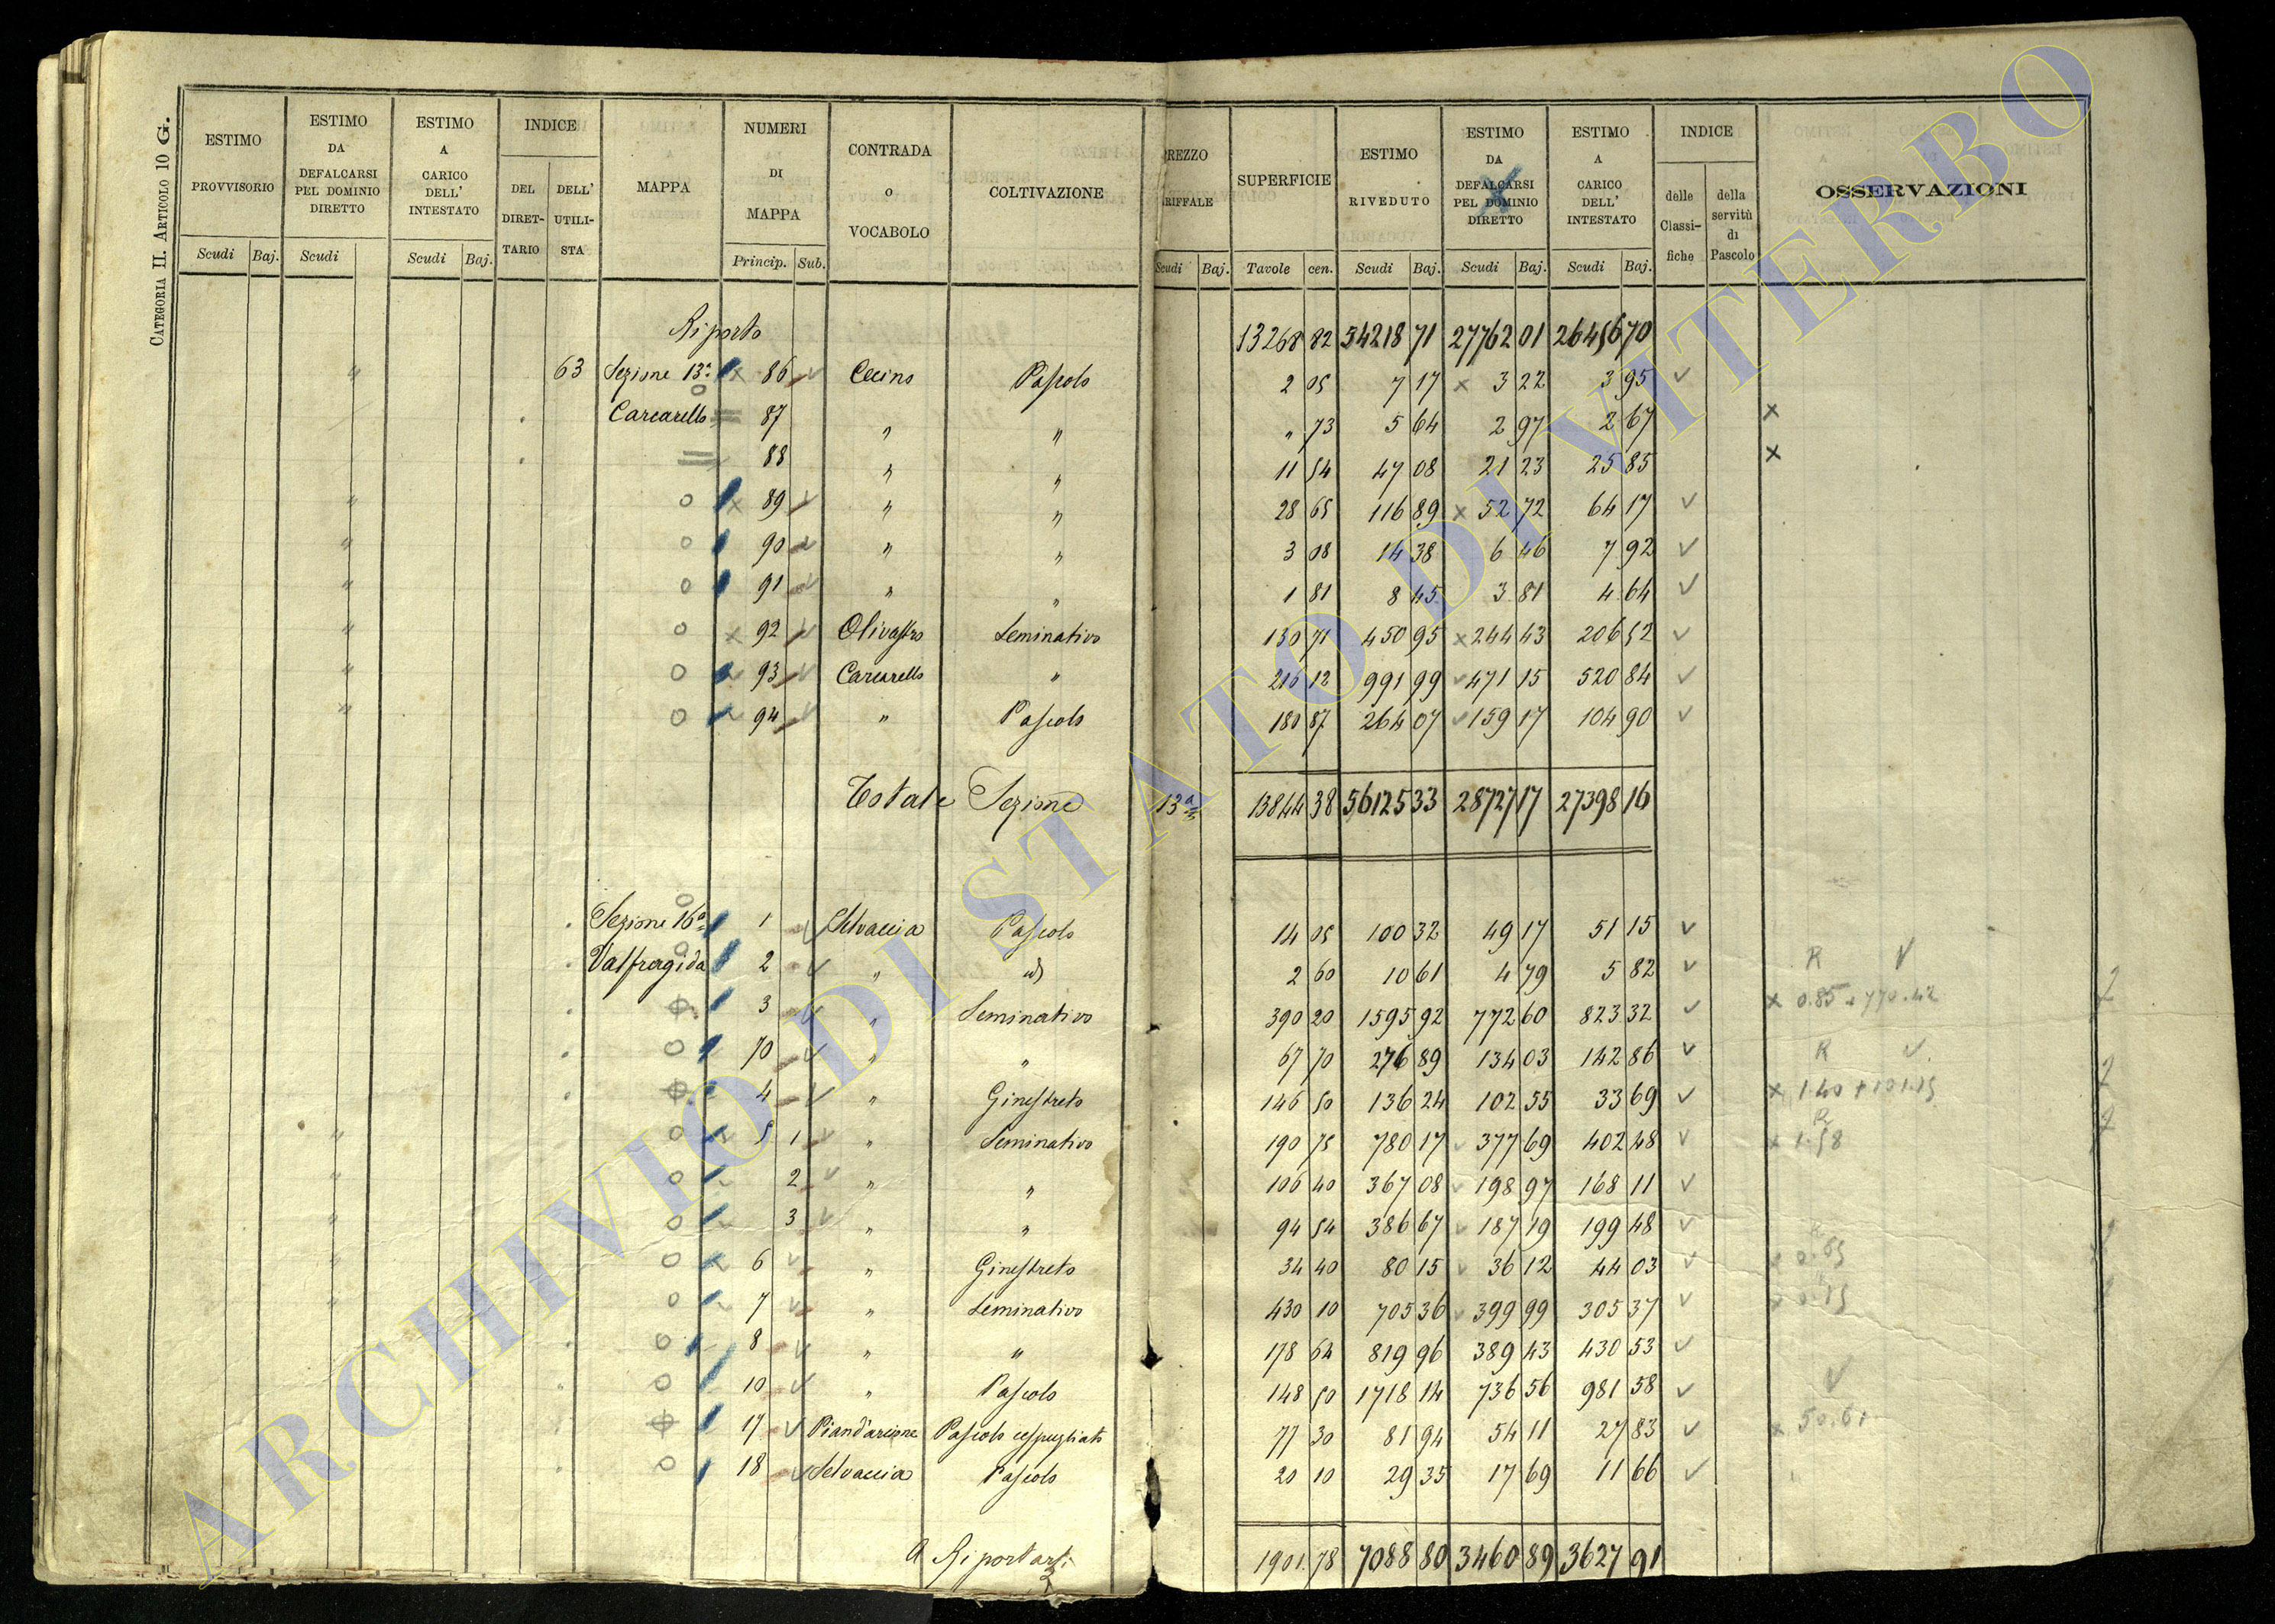 CATEGORIA II. ARTICOLO 10 G.
ESTIMO PROVVISORIO Scudi Baj.
ESTIMO DA DEFALCARSI PEL DOMINIO DIRETTO Scudi
ESTIMO A CARICO DELL' INTESTATO Scudi Baj.
INDICE DEL DIRETTARIO DELL' UTILISTA
MAPPA
NUMERI DI MAPPA Princip. Sub.
CONTRADA o VOCABOLO
COLTIVAZIONE
REZZO RIFFALE Scudi Baj.
SUPERFICIE Tavole cen.
ESTIMO RIVEDUTO Scudi Baj.
ESTIMO DA DEFALCARSI PEL DOMINIO DIRETTO Scudi Baj.
ESTIMO A CARICO DELL' INTESTATO Scudi Baj.
INDICE delle Classifiche della servitù di Pascolo
OSSERVAZIONI
Riporto 13268 82 54218 71 27762 01 26456 70
63 Sezione 13ª x 86 Cecino Pascolo 2 05 7 17 x 3 22 3 95
Carcarello 87 " " " 73 5 64 2 97 2 67 x
88 " " 11 54 47 08 21 23 25 85 x
" 89 " " 28 65 116 89 x 52 72 64 17
" 90 " " 3 08 14 38 6 46 7 92
" 91 " " 1 81 8 45 3 81 4 64
" x 92 Olivastro Seminativo 130 71 450 95 x 244 43 206 52
" 93 Carcarello " 216 12 991 99 471 15 520 84
" 94 " Pascolo 180 87 264 07 159 17 104 90
Totale Sezione 13ª 13844 38 56125 33 28727 17 27398 16
Sezione 16ª 1 Selvaccia Pascolo 14 05 100 32 49 17 51 15
Valfragida 2 " id 2 60 10 61 4 79 5 82 R V
3 " Seminativo 390 20 1595 92 772 60 823 32 x 0.85 + 770.42
70 " " 67 70 276 89 134 03 142 86 R V
4 " Ginestreto 146 50 136 24 102 55 33 69 x 1.40 + 101.15
" 5 1 " Seminativo 190 75 780 17 377 69 402 48 x 1.58
" 2 " " 106 40 367 08 198 97 168 11
" 3 " " 94 54 386 67 187 19 199 48
" 6 " Ginestreto 34 40 80 15 36 12 44 03
" 7 " Seminativo 430 10 705 36 399 99 305 37
8 " " 178 64 819 96 389 43 430 53
10 " Pascolo 148 50 1718 14 736 56 981 58 V
17 Piand'arcione Pascolo cespugliato 77 30 81 94 54 11 27 83
18 Selvaccia Pascolo 20 10 29 35 17 69 11 66
A Riportarsi 1901.78 7088 80 3460 89 3627 91
ARCHIVIO DI STATO DI VITERBO